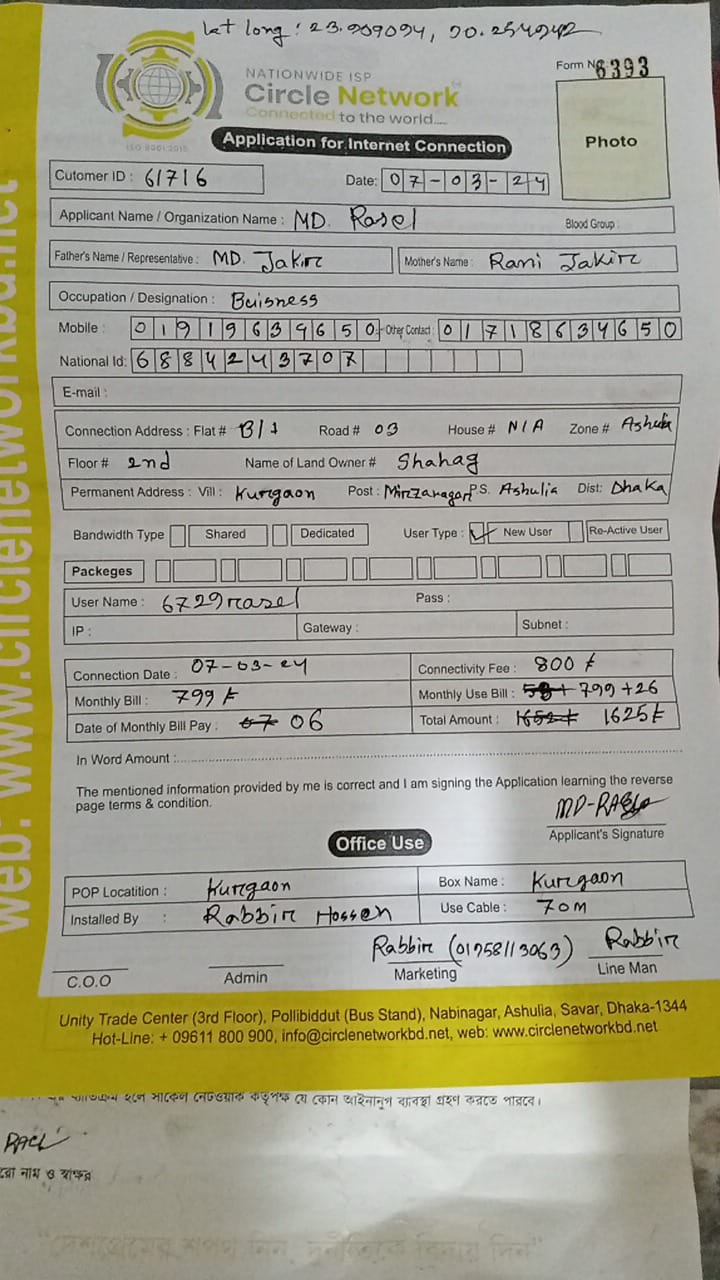 Lat long: 23.909094, 90.254942
Form No 6393
NATIONWIDE ISP
Circle Network
Connected to the world....
ISO 9001:2015
Photo
Application for Internet Connection
Cutomer ID : 61716 Date: 07-03-24
Applicant Name / Organization Name : MD. Rasel Blood Group :
Father's Name / Representative : MD. Jakir Mother's Name : Rani Jakir
Occupation / Designation : Buisness
Mobile : 01919639650 Other Contact : 01718634650
National Id: 6884243707
E-mail :
Connection Address : Flat # B/1 Road # 03 House # N/A Zone # Ashulia
Floor # 2nd Name of Land Owner # Shahag
Permanent Address : Vill : Kurgaon Post : Mirzanagar P.S. Ashulia Dist: Dhaka
Bandwidth Type Shared Dedicated User Type : New User Re-Active User
Packeges
User Name : 6729rasel Pass :
IP : Gateway : Subnet :
Connection Date : 07-03-24 Connectivity Fee : 800 ৳
Monthly Bill : 799 ৳ Monthly Use Bill : 799 +26
Date of Monthly Bill Pay : 07 06 Total Amount : 1652 ৳ 1625৳
In Word Amount :
The mentioned information provided by me is correct and I am signing the Application learning the reverse
page terms & condition.
MD-RASEL
Applicant's Signature
Office Use
POP Locatition : Kurgaon Box Name : Kurgaon
Installed By : Rabbir Hossen Use Cable : 70m
Rabbir (01958113063) Rabbir
C.O.O Admin Marketing Line Man
Unity Trade Center (3rd Floor), Pollibiddut (Bus Stand), Nabinagar, Ashulia, Savar, Dhaka-1344
Hot-Line: + 09611 800 900, info@circlenetworkbd.net, web: www.circlenetworkbd.net
web: www.circlenetworkbd.net
হলে সার্কেল নেটওয়ার্ক কর্তৃপক্ষ যে কোন আইনানুগ ব্যবস্থা গ্রহণ করতে পারবে।
নাম ও স্বাক্ষর
"দেশপ্রেমের শপথ নিন, দুর্নীতিকে বিদায় দিন"